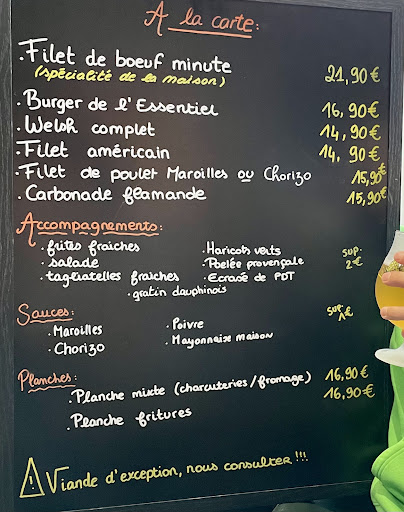 A la carte:
. Filet de boeuf minute
(spécialité de la maison) 21,90€
. Burger de l'Essentiel 16,90€
. Welsh complet 14,90€
. Filet américain 14,90€
. Filet de poulet Maroilles ou Chorizo 15,90€
. Carbonade flamande 15,90€
Accompagnements: sup.
. frites fraiches . Haricots verts 2€
. salade . Poelée provençale
. tagliatelles fraiches . Ecrasé de PDT
. gratin dauphinois
Sauces: sup. 1€
. Maroilles . Poivre
. Chorizo . Mayonnaise maison
Planches:
. Planche mixte (charcuteries/fromage) 16,90€
. Planche fritures 16,90€
! Viande d'exception, nous consulter!!!